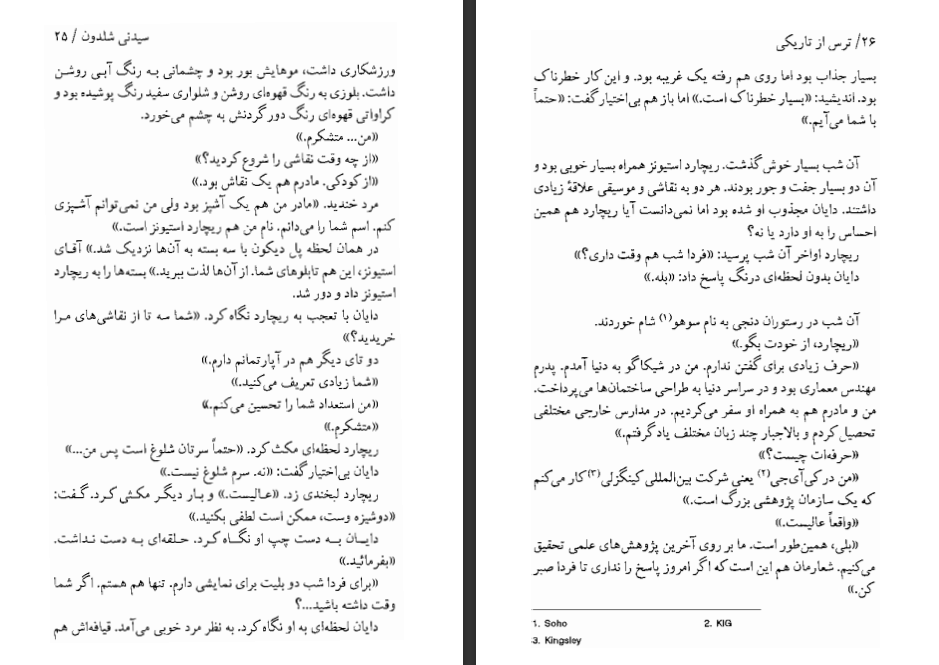 سیدنی شلدون / ۲۵
ورزشکاری داشت، موهایش بور بود و چشمانی به رنگ آبی روشن
داشت. بلوزی به رنگ قهوه‌ای روشن و شلواری سفید رنگ پوشیده بود و
کراواتی قهوه‌ای رنگ دور گردنش به چشم می‌خورد.
«من... متشکرم.»
«از چه وقت نقاشی را شروع کردید؟»
«از کودکی. مادرم هم یک نقاش بود.»
مرد خندید. «مادر من هم یک آشپز بود ولی من نمی‌توانم آشپزی
کنم. اسم شما را می‌دانم. نام من هم ریچارد استیونز است.»
در همان لحظه پل دیکون با سه بسته به آن‌ها نزدیک شد.» آقای
استیونز، این هم تابلوهای شما. از آن‌ها لذت ببرید.» بسته‌ها را به ریچارد
استیونز داد و دور شد.
دایان با تعجب به ریچارد نگاه کرد. «شما سه تا از نقاشی‌های مرا
خریدید؟»
دو تای دیگر هم در آپارتمانم دارم.»
«شما زیادی تعریف می‌کنید.»
«من استعداد شما را تحسین می‌کنم.»
«متشکرم.»
ریچارد لحظه‌ای مکث کرد. «حتماً سرتان شلوغ است پس من...»
دایان بی‌اختیار گفت: «نه. سرم شلوغ نیست.»
ریچارد لبخندی زد. «عالیست.» و بار دیگر مکثی کرد. گفت:
«دوشیزه وست، ممکن است لطفی بکنید.»
دایان به دست چپ او نگاه کرد. حلقه‌ای به دست نداشت.
«بفرمائید.»
«برای فردا شب دو بلیت برای نمایشی دارم. تنها هم هستم. اگر شما
وقت داشته باشید...؟
دایان لحظه‌ای به او نگاه کرد. به نظر مرد خوبی می‌آمد. قیافه‌اش هم
۲۶/ ترس از تاریکی
بسیار جذاب بود اما روی هم رفته یک غریبه بود. و این کار خطرناک
بود. اندیشید: «بسیار خطرناک است.» اما باز هم بی‌اختیار گفت: «حتماً
با شما می‌آیم.»
آن شب بسیار خوش گذشت. ریچارد استیونز همراه بسیار خوبی بود و
آن دو بسیار جفت و جور بودند. هر دو به نقاشی و موسیقی علاقهٔ زیادی
داشتند. دایان مجذوب او شده بود اما نمی‌دانست آیا ریچارد هم همین
احساس را به او دارد یا نه؟
ریچارد اواخر آن شب پرسید: «فردا شب هم وقت داری؟»
دایان بدون لحظه‌ای درنگ پاسخ داد: «بله.»
آن شب در رستوران دنجی به نام سوهو(۱) شام خوردند.
«ریچارد، از خودت بگو.»
«حرف زیادی برای گفتن ندارم. من در شیکاگو به دنیا آمدم. پدرم
مهندس معماری بود و در سراسر دنیا به طراحی ساختمان‌ها می‌پرداخت.
من و مادرم هم به همراه او سفر می‌کردیم. در مدارس خارجی مختلفی
تحصیل کردم و بالاجبار چند زبان مختلف یاد گرفتم.»
«حرفه‌ات چیست؟»
«من در کی‌آی‌جی(۲) یعنی شرکت بین‌المللی کینگزلی(۳) کار می‌کنم
که یک سازمان پژوهشی بزرگ است.»
«واقعاً عالیست.»
«بلی، همین‌طور است. ما بر روی آخرین پژوهش‌های علمی تحقیق
می‌کنیم. شعارمان هم این است که اگر امروز پاسخ را نداری تا فردا صبر
کن.»
1. Soho 2. KIG
3. Kingsley